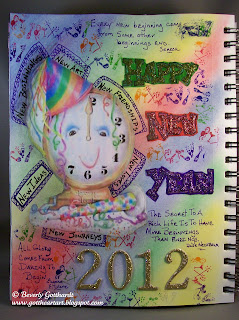 Every new beginning comes
from some other
beginnings end.
Seneca
Happy
New
Year
New Art
New Friendships
New Ideas
New Journeys
The Secret To A
Rich Life Is To Have
More Beginnings
Than Endings.
All Glory
Comes From
Daring To
Begin
2012
© Beverly Gotthardt
www.gottheartart.blogspot.com